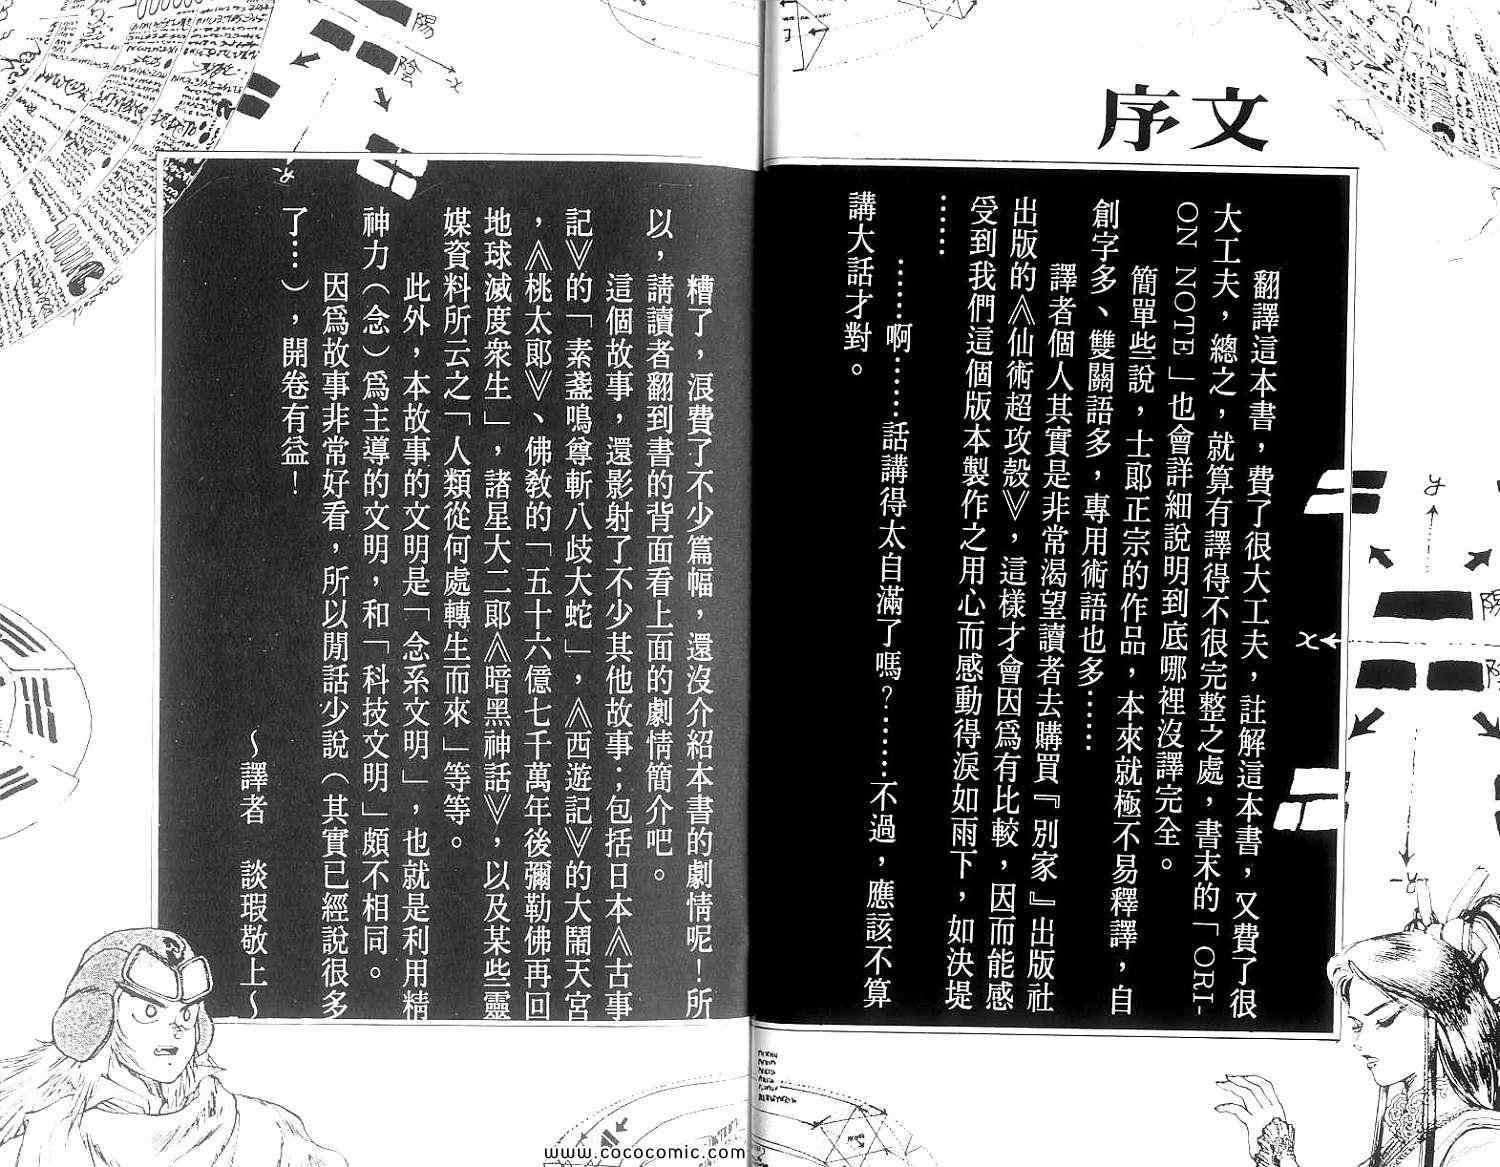 序文
翻譯這本書，費了很大工夫，註解這本書，又費了很
大工夫，總之，就算有譯得不很完整之處，書末的「ORI-
ON NOTE」也會詳細說明到底哪裡沒譯完全。
簡單些說，士郎正宗的作品，本來就極不易釋譯，自
創字多、雙關語多，專用術語也多……
譯者個人其實是非常渴望讀者去購買『別家』出版社
出版的《仙術超攻殼》，這樣才會因爲有比較，因而能感
受到我們這個版本製作之用心而感動得淚如雨下，如決堤
……
……啊……話講得太自滿了嗎？……不過，應該不算
講大話才對。
糟了，浪費了不少篇幅，還沒介紹本書的劇情呢！所
以，請讀者翻到書的背面看上面的劇情簡介吧。
這個故事，還影射了不少其他故事；包括日本《古事
記》的「素盞鳴尊斬八歧大蛇」，《西遊記》的大鬧天宮
，《桃太郎》、佛教的「五十六億七千萬年後彌勒佛再回
地球滅度衆生」，諸星大二郎《暗黑神話》，以及某些靈
媒資料所云之「人類從何處轉生而來」等等。
此外，本故事的文明是「念系文明」，也就是利用精
神力（念）爲主導的文明，和「科技文明」頗不相同。
因爲故事非常好看，所以閒話少說（其實已經說很多
了…），開卷有益！
～譯者　談瑕敬上～
陽
陰
x
-y
y
陽
x
陰
-y
www.cococomic.com